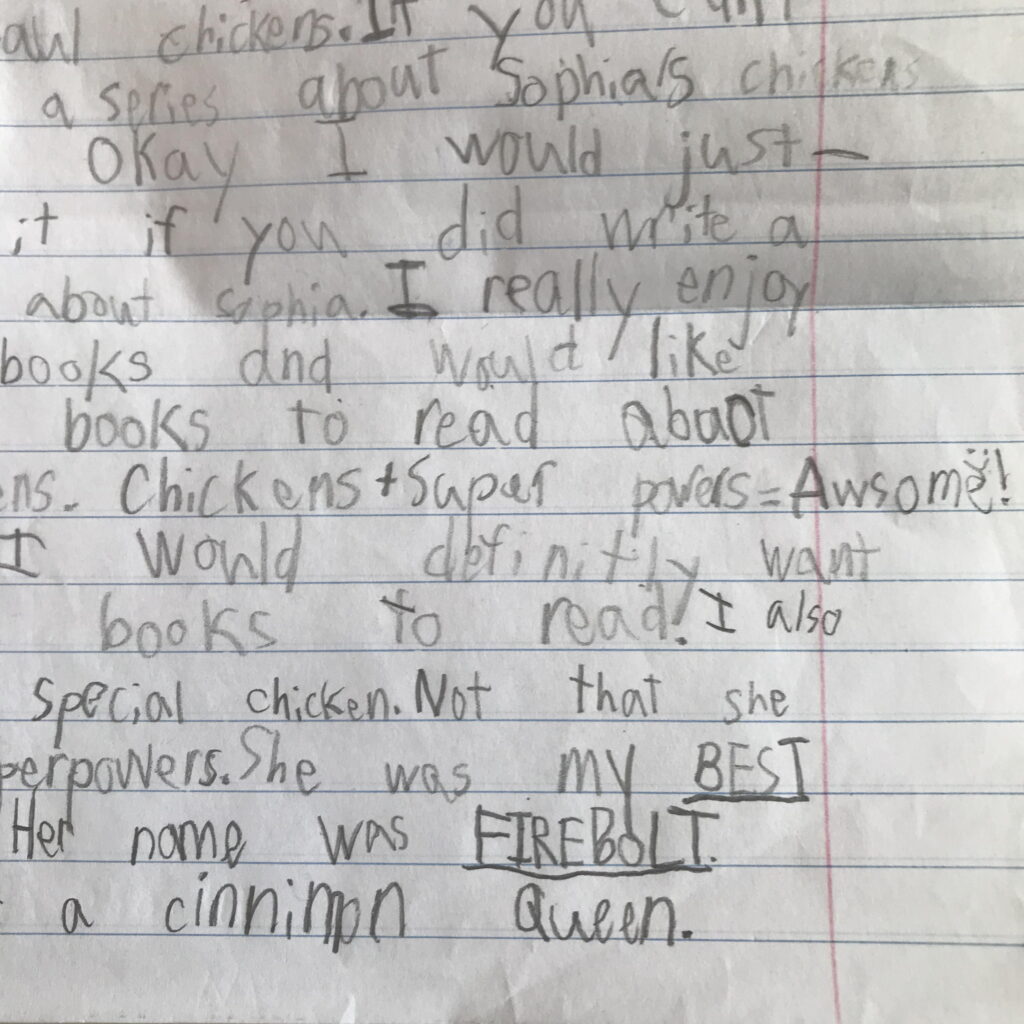 chickens. If you can't
a series about Sophia's chickens
Okay I would just —
it if you did write a
about Sophia. I really enjoy
books and would like
books to read about
ens. Chickens + Super powers = Awsome!
I would definitly want
books to read! I also
special chicken. Not that she
perpowers. She was my BEST
Her name was FIREBOLT.
a cinnimon Queen.